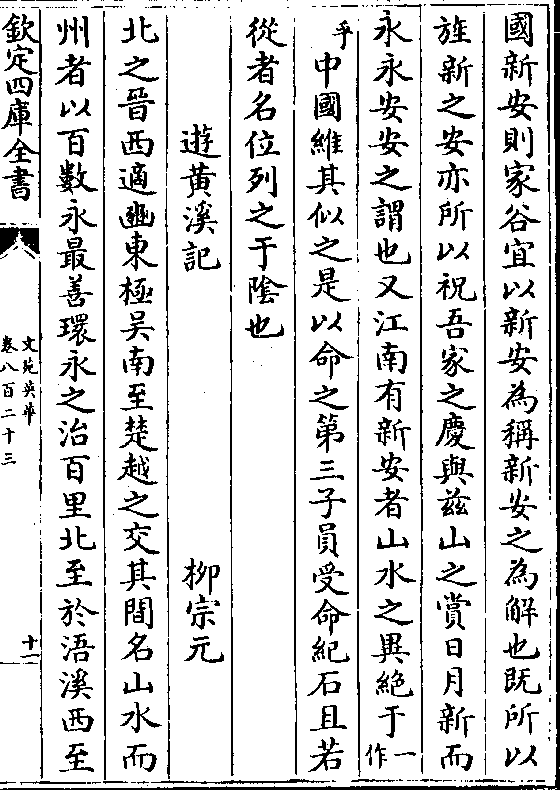 國新安則家谷宜以新安為稱新安之為解也既所以
旌新之安亦所以祝吾家之慶與兹山之賞日月新而
永永安安之謂也又江南有新安者山水之異絶于一作
乎中國維其似之是以命之第三子員受命紀石且若
從者名位列之于陰也
遊黄溪記　柳宗元
北之晉西適豳東極吳南至楚越之交其間名山水而
州者以百數永最善環永之治百里北至於浯溪西至
欽定四庫全書
文苑英華
卷八百二十三
十一